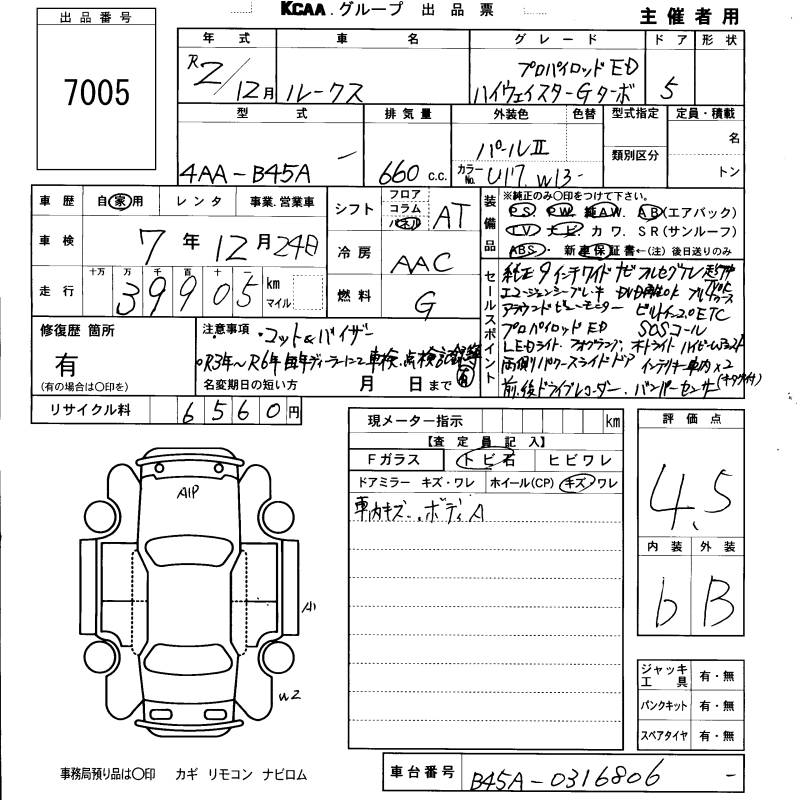 KCAA.グループ 出品票
主催者用
出品番号
7005
年式 車名 グレード ドア 形状
R2/12月 ルークス プロパイロットED ハイウェイスターGターボ 5
型式 排気量 外装色 色替 型式指定 定員・積載
4AA-B45A - 660 c.c. パールⅡ カラーNo. U17. W13- 類別区分 名 トン
車歴 自家用 レンタ 事業.営業車
シフト フロア コラム パネル AT
装備品 ※純正のみ○印をつけて下さい。
PS PW 純AW. AB(エアバック)
TV ナビ カワ. SR(サンルーフ)
ABS・ 新車保証書←(注)後日送りのみ
車検 7年12月24日
冷房 AAC
走行 十万 万 千 百 十 一 39905 km マイル
燃料 G
セールスポイント
純正9インチワイドナビ フルセグTV
エマージェンシーブレーキ DVD再生OK ブルートゥース
アラウンドビューモニター ビルトイン2.0ETC
プロパイロットED SOSコール
LEDライト. フォグランプ. オートライト ハイビームアシスト
両側パワースライドドア インテリキー車内×2
前.後ドライブレコーダー. バンパーセンサー
修復歴 箇所
有
(有の場合は○印を)
注意事項 ・マット&バイザー
○R3年~R6年 毎年ディーラーにて車検.点検記録簿 有
名変期日の短い方 月 日まで
リサイクル料 6560円
現メーター指示 km
【査定員記入】
Fガラス トビ石 ヒビワレ
ドアミラー キズ・ワレ ホイール(CP) キズ/ワレ
車内キズ. ボディA
評価点
4.5
内装 外装
b B
A1P
A1
W2
ジャッキ工具 有・無
パンクキット 有・無
スペアタイヤ 有・無
事務局預り品は○印 カギ リモコン ナビロム
車台番号 B45A-0316806 -